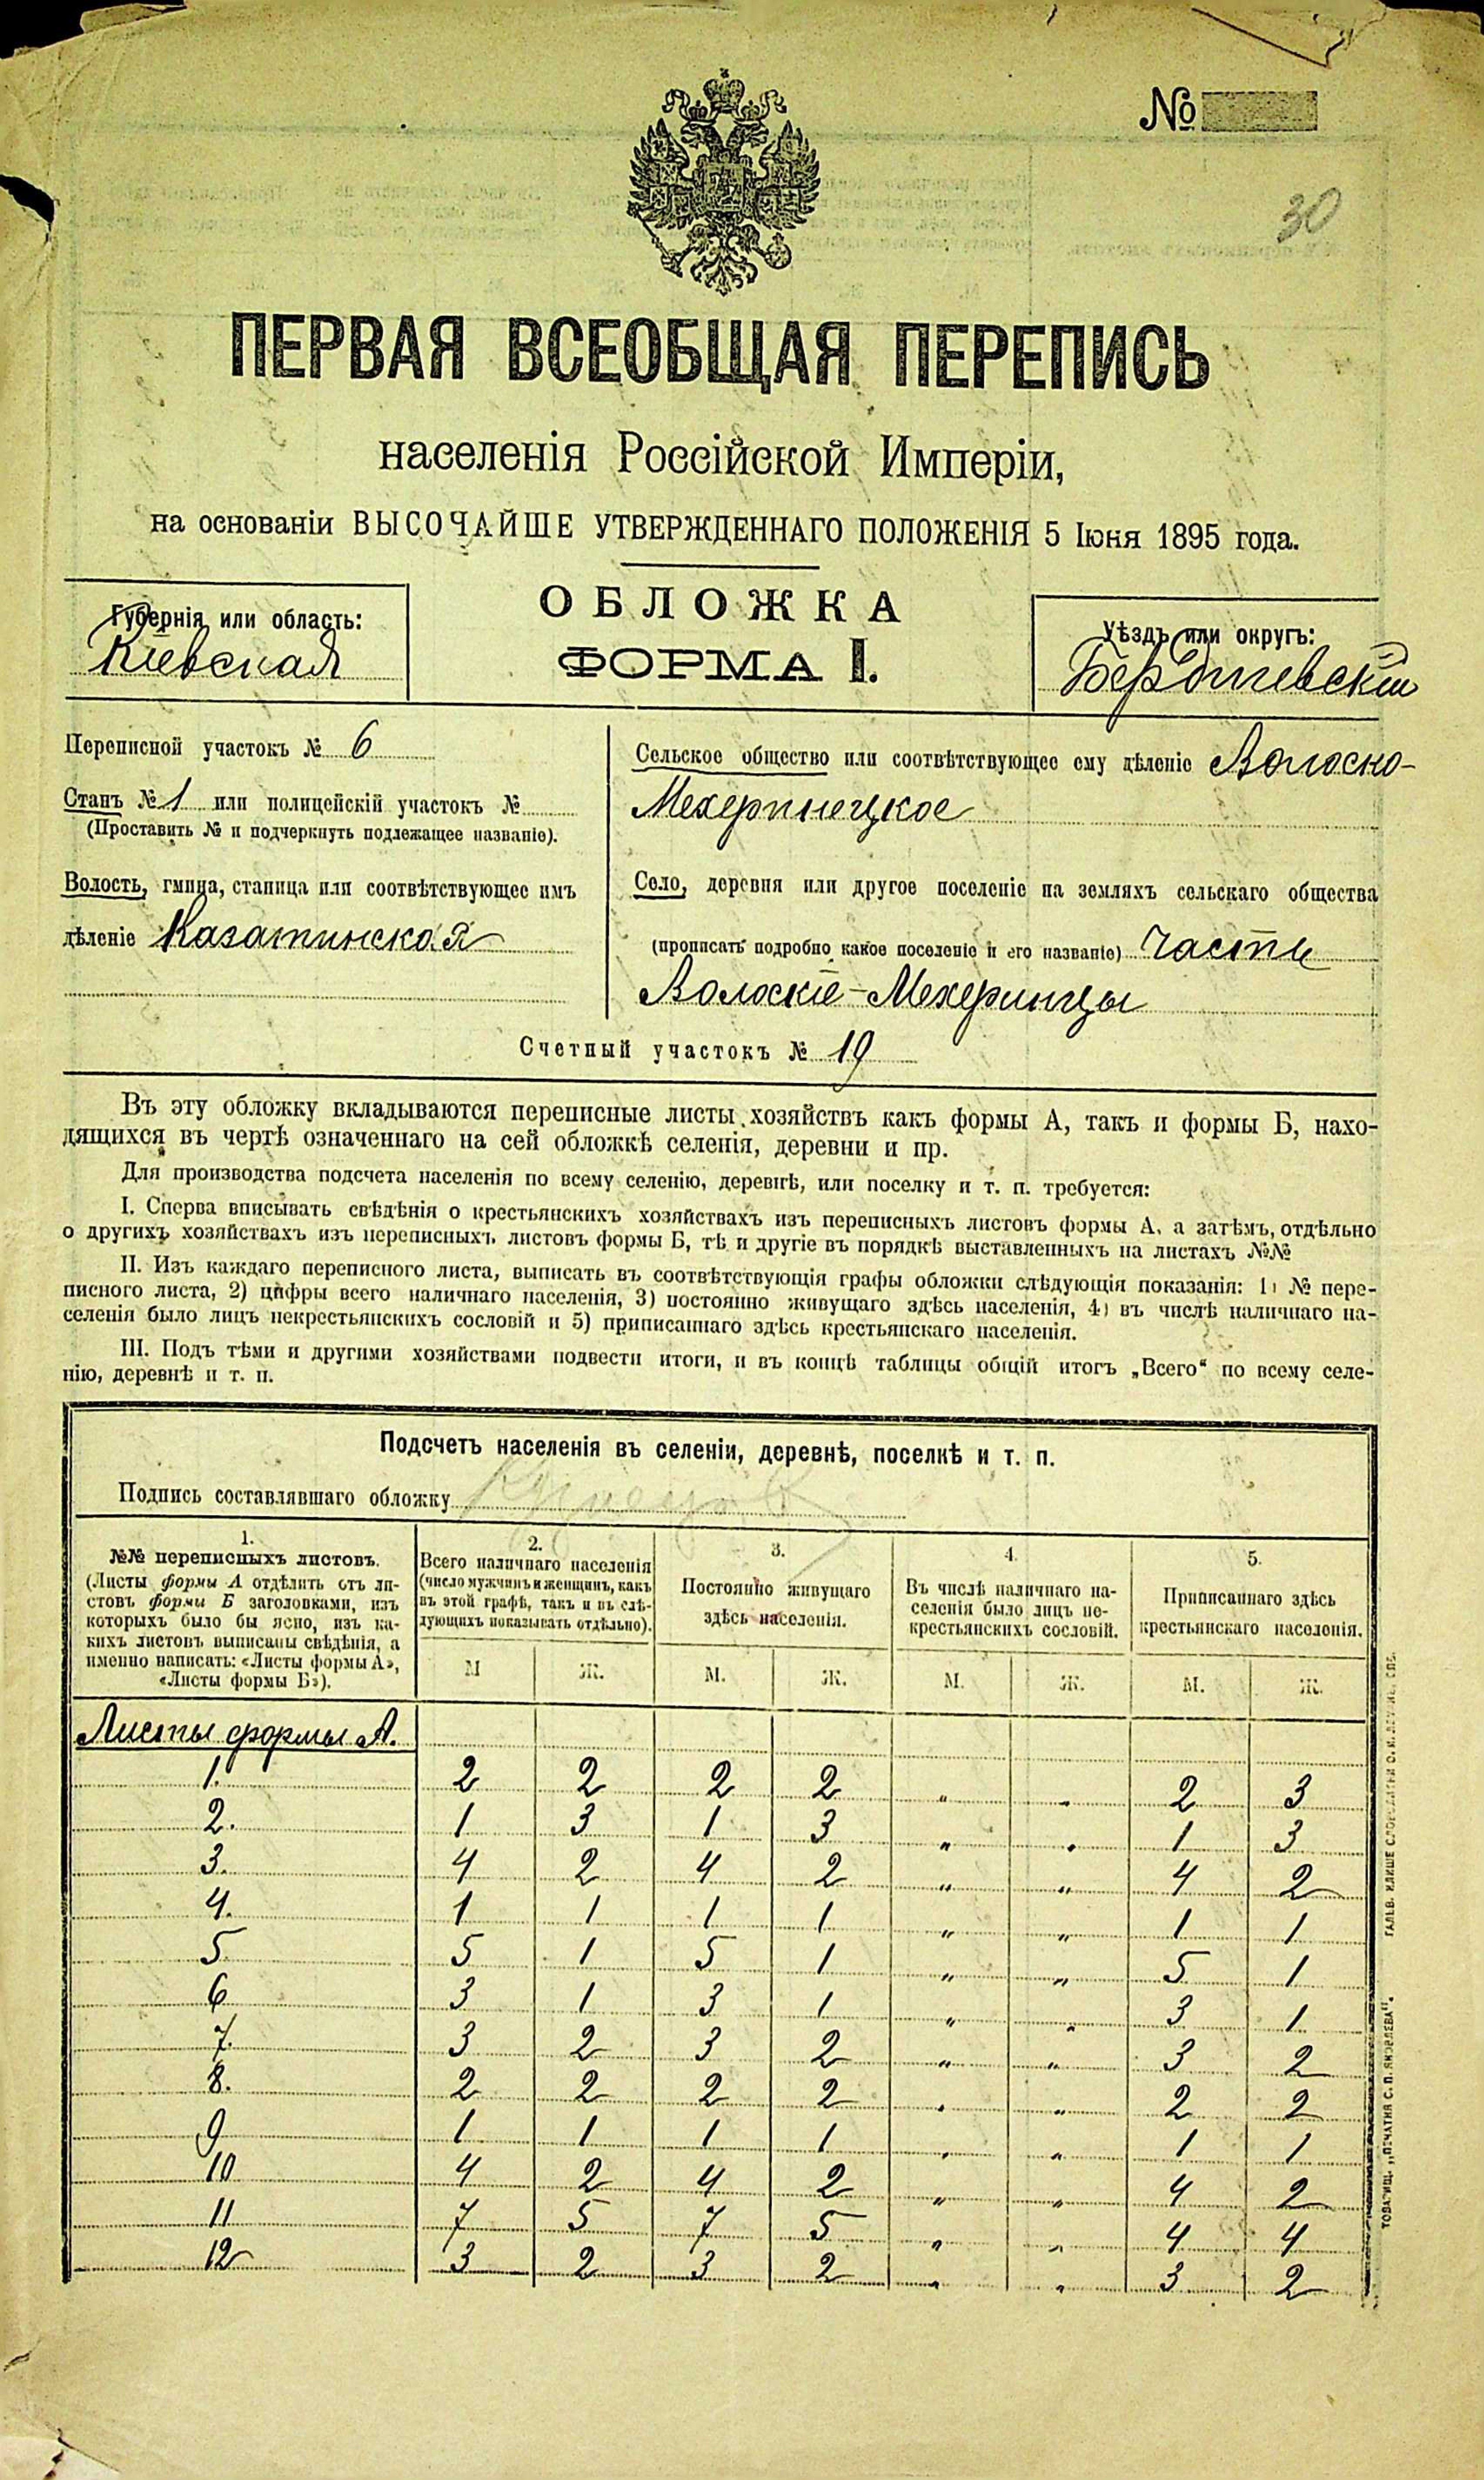 №
30
ПЕРВАЯ ВСЕОБЩАЯ ПЕРЕПИСЬ
населенія Россійской Имперіи,
на основаніи ВЫСОЧАЙШЕ УТВЕРЖДЕННАГО ПОЛОЖЕНІЯ 5 Іюня 1895 года.
Губернія или область:
Кіевская
ОБЛОЖКА
ФОРМА I.
Уѣздъ или округъ:
Бердичевскій
Переписной участокъ № 6
Станъ № 1 или полицейскій участокъ №
(Проставить № и подчеркнуть подлежащее названіе).
Волость, гмина, станица или соотвѣтствующее имъ
дѣленіе Казатинская
Сельское общество или соотвѣтствующее ему дѣленіе Волоско-
Мехеринецкое
Село, деревня или другое поселеніе на земляхъ сельскаго общества
(прописать подробно какое поселеніе и его названіе) Часть
Волоскіе-Мехеринцы
Счетный участокъ № 19
Въ эту обложку вкладываются переписные листы хозяйствъ какъ формы А, такъ и формы Б, нахо-
дящихся въ чертѣ означеннаго на сей обложкѣ селенія, деревни и пр.
Для производства подсчета населенія по всему селенію, деревнѣ, или поселку и т. п. требуется:
I. Сперва вписывать свѣдѣнія о крестьянскихъ хозяйствахъ изъ переписныхъ листовъ формы А, а затѣмъ, отдѣльно
о другихъ хозяйствахъ изъ переписныхъ листовъ формы Б, тѣ и другіе въ порядкѣ выставленныхъ на листахъ №№
II. Изъ каждаго переписного листа, выписать въ соотвѣтствующія графы обложки слѣдующія показанія: 1) № пере-
писного листа, 2) цифры всего наличнаго населенія, 3) постоянно живущаго здѣсь населенія, 4) въ числѣ наличнаго на-
селенія было лицъ некрестьянскихъ сословій и 5) приписаннаго здѣсь крестьянскаго населенія.
III. Подъ тѣми и другими хозяйствами подвести итоги, и въ концѣ таблицы общій итогъ „Всего“ по всему селе-
нію, деревнѣ и т. п.
Подсчетъ населенія въ селеніи, деревнѣ, поселкѣ и т. п.
Подпись составлявшаго обложку
1.
№№ переписныхъ листовъ.
(Листы формы А отдѣлить отъ ли-
стовъ формы Б заголовками, изъ
которыхъ было бы ясно, изъ ка-
кихъ листовъ выписаны свѣдѣнія, а
именно написать: «Листы формы А»,
«Листы формы Б»).
2.
Всего наличнаго населенія
(число мужчинъ и женщинъ, какъ
въ этой графѣ, такъ и въ слѣ-
дующихъ показывать отдѣльно).
3.
Постоянно живущаго
здѣсь населенія.
4.
Въ числѣ наличнаго на-
селенія было лицъ не-
крестьянскихъ сословій.
5.
Приписаннаго здѣсь
крестьянскаго населенія.
М Ж. М. Ж. М. Ж. М. Ж.
Листы формы А.
1. 2 2 2 2 " " 2 3
2. 1 3 1 3 " " 1 3
3. 4 2 4 2 " " 4 2
4. 1 1 1 1 " " 1 1
5 5 1 5 1 " " 5 1
6 3 1 3 1 " " 3 1
7. 3 2 3 2 " " 3 2
8. 2 2 2 2 " " 2 2
9 1 1 1 1 " " 1 1
10 4 2 4 2 " " 4 2
11 7 5 7 5 " " 4 4
12 3 2 3 2 " " 3 2